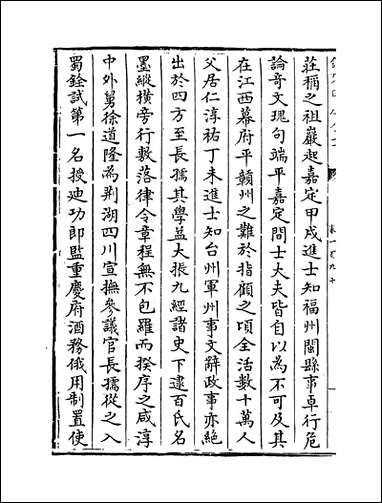 莊稱之祖巖起嘉定甲戌進士知福州閩縣事卓行危
論奇文瑰句端平嘉定間士大夫皆自以為不可及其
在江西幕府平贛州之難於指顧之頃全活數十萬人
父居仁淳祐丁未進士知台州軍州事文辭政事亦絶
出於四方至長孺其學益大振九經諸史下逮百氏名
墨縱横旁行敷落律令章程無不包羅而揆序之咸淳
中外舅徐道隆為荆湖四川宣撫參議官長孺從之入
蜀銓試第一名授廸功郎監重慶府酒務俄用制置使